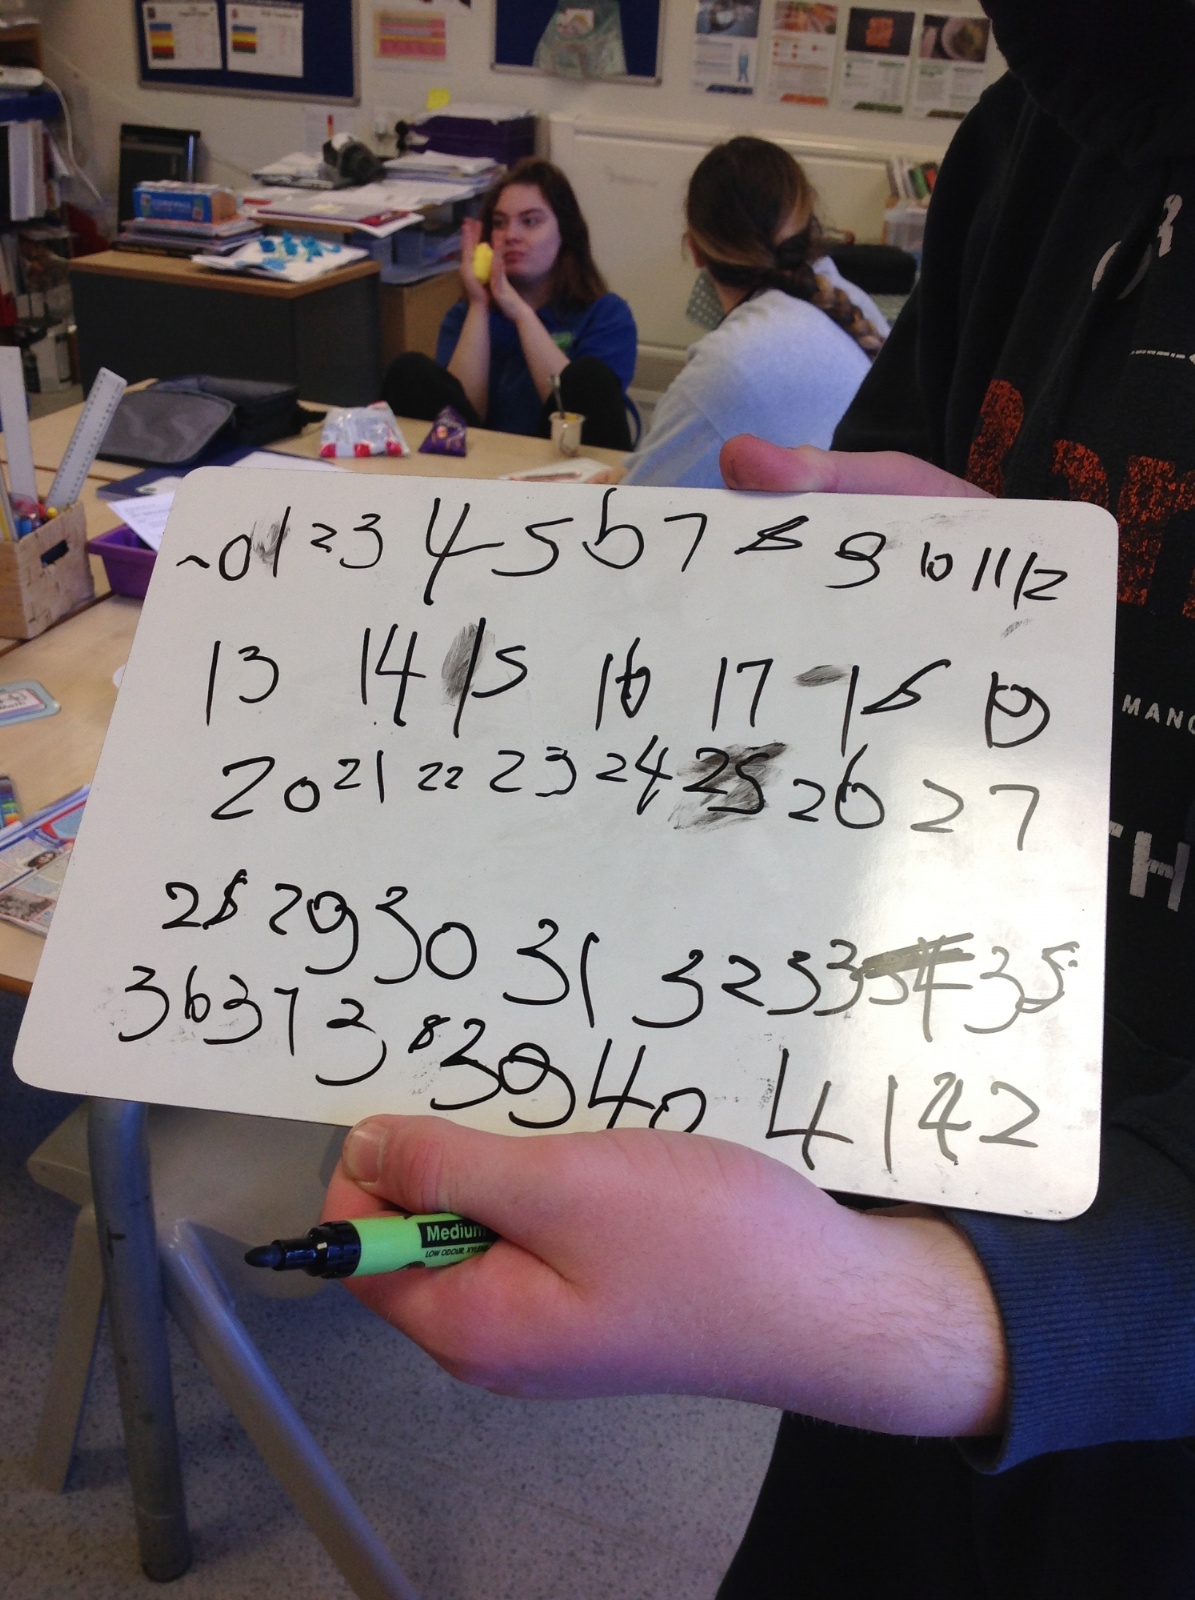 ~0 1 2 3 4 5 6 7 8 9 10 11 12
13 14 15 16 17 18 19
20 21 22 23 24 25 26 27
28 29 30 31 32 33 34 35
36 37 38 39 40 41 42
Medium
LOW ODOUR
MANC
TH